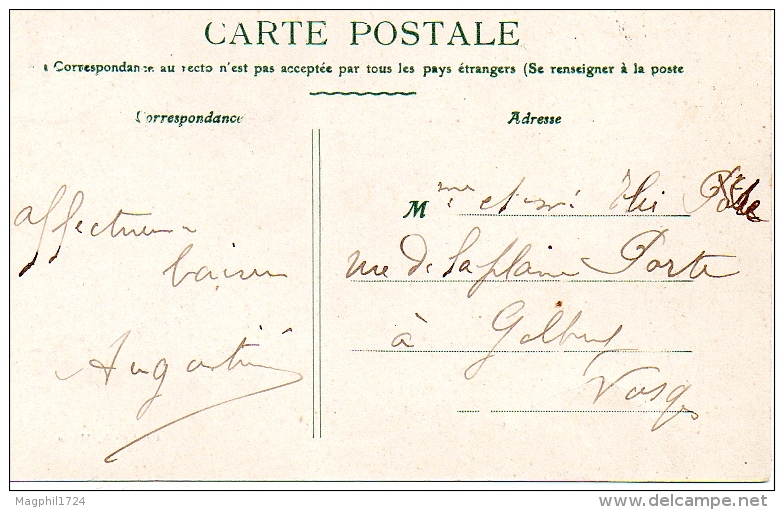 CARTE POSTALE
a Correspondance au recto n'est pas acceptée par tous les pays étrangers (Se renseigner à la poste
Correspondance
Adresse
affectueux
baisers
Augustin
Mme et mr
rue de la plaine Porte
à Golbey
Vosges
Magphil1724
www.delcampe.net